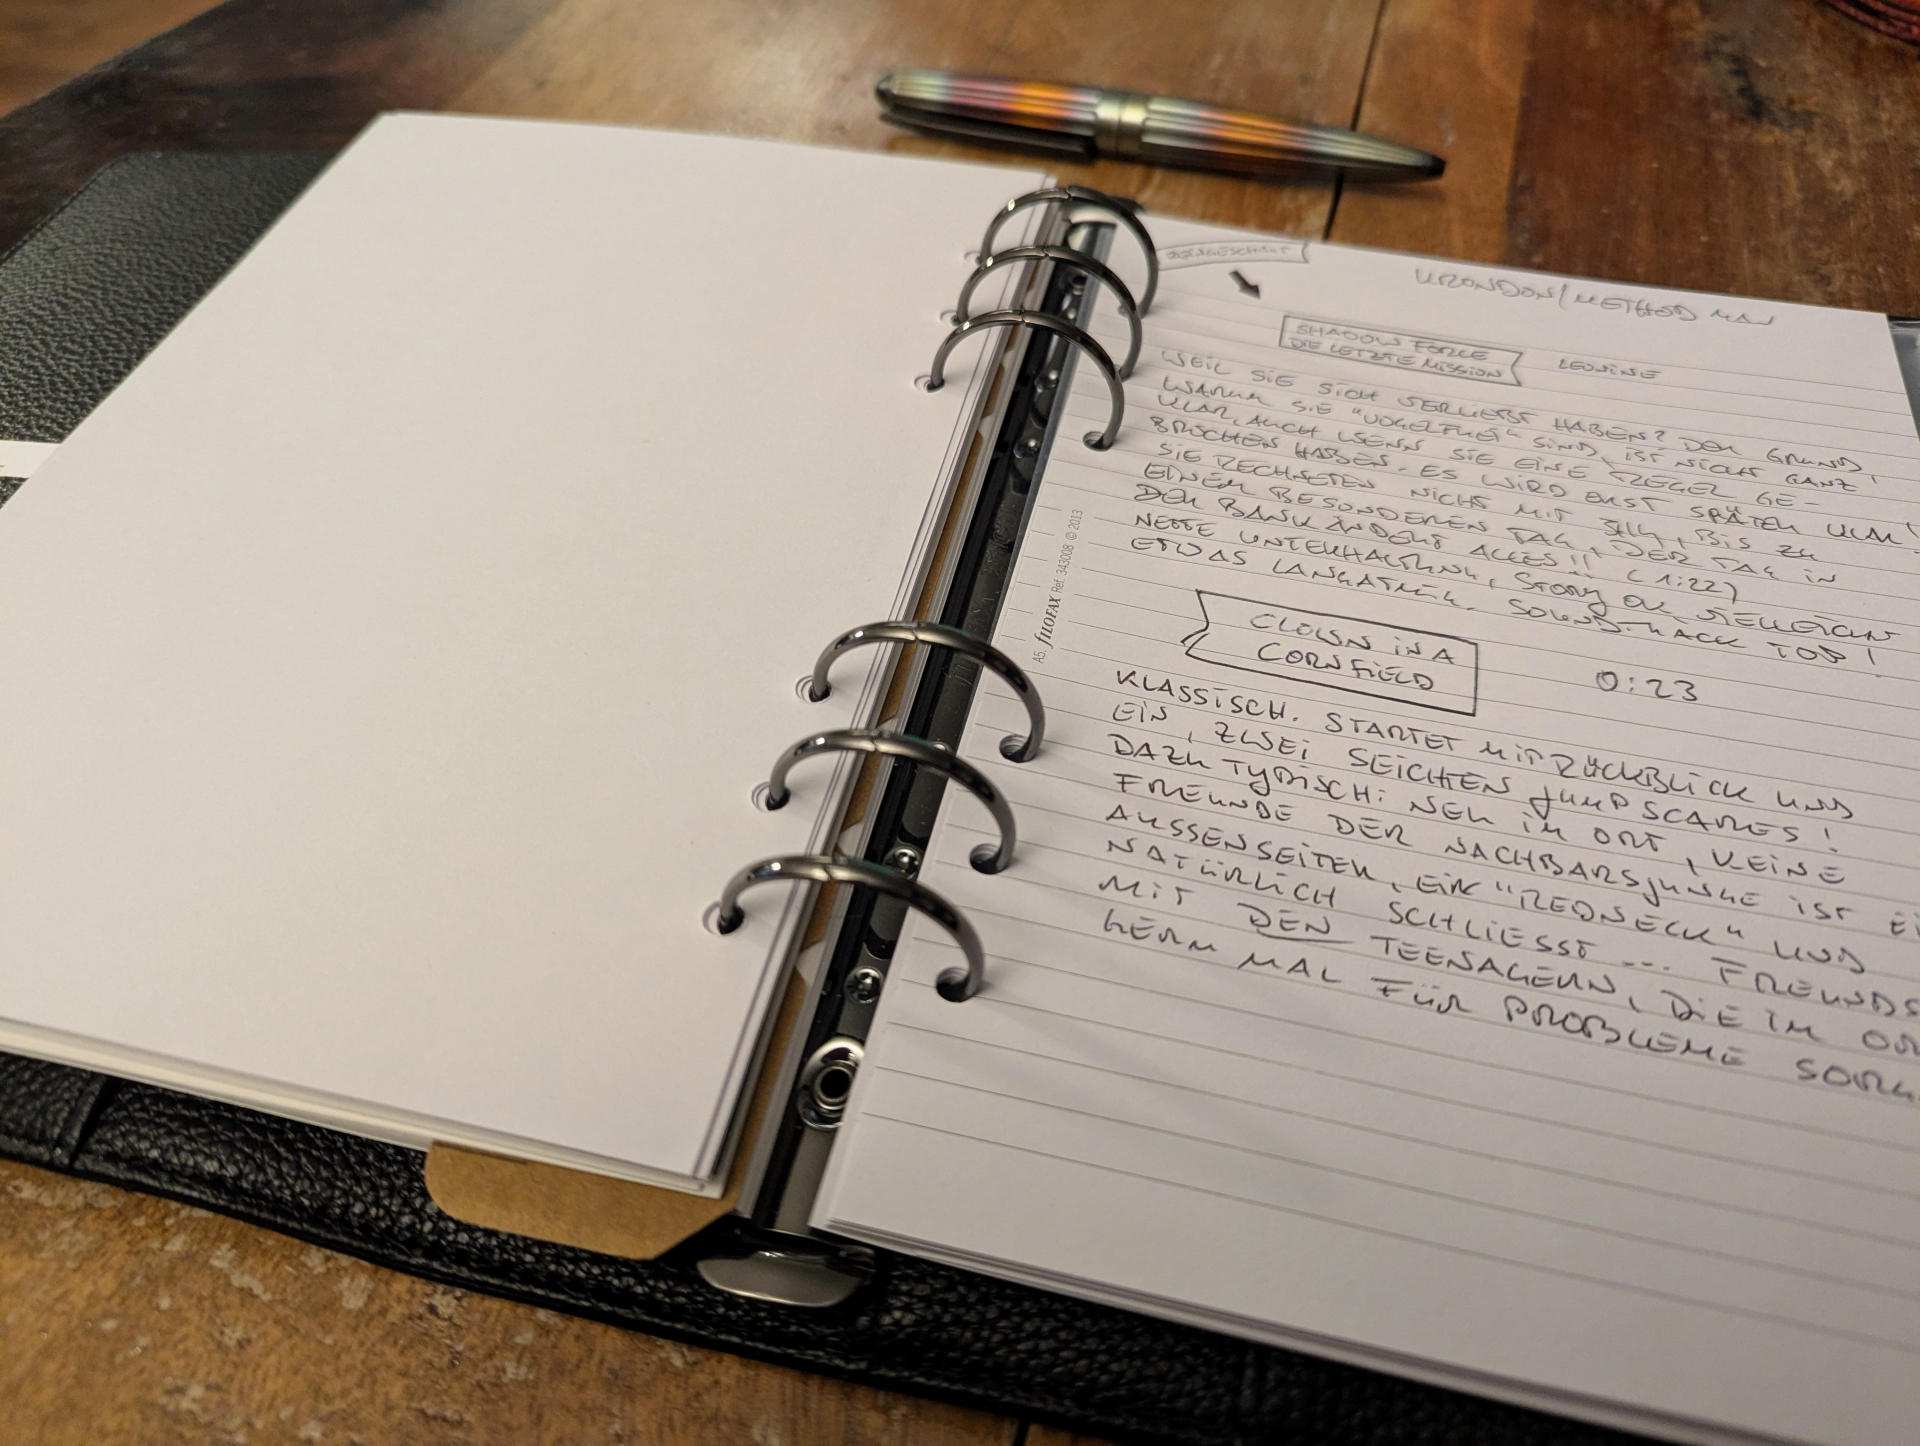 KRONDON/METHOD MAN
SHADOW FORCE
DIE LETZTE MISSION
LEONINE
WEIL SIE SICH VERLIEBT HABEN? DER GRUND,
WARUM SIE "VOGELFREI" SIND, IST NICHT GANZ
KLAR, AUCH WENN SIE EINE REGEL GE-
BROCHEN HABEN. ES WIRD ERST SPÄTER KLAR!
SIE RECHNETEN NICHT MIT IHM, BIS ZU
EINEM BESONDEREN TAG, DER TAG IN
DER BANK ÄNDERT ALLES!! (1:22)
NETTE UNTERHALTUNG, STORY OK, VIELLEICHT
ETWAS LANGATMIG. SOUNDTRACK TOP!
A5. fiLOFAX Ref. 343008 © 2013
CLOWN IN A
CORNFIELD
0:23
KLASSISCH. STARTET MIT RÜCKBLICK UND
EIN, ZWEI SEICHTEN JUMPSCARES!
DAZU TYPISCH: NEU IM ORT, KEINE
FREUNDE DER NACHBARSJUNGE IST EI
AUSSENSEITER, EIN "REDNECK" UND
NATÜRLICH SCHLIESST ... FREUNDS
MIT DEN TEENAGERN, DIE IM OR
GERN MAL FÜR PROBLEME SORG